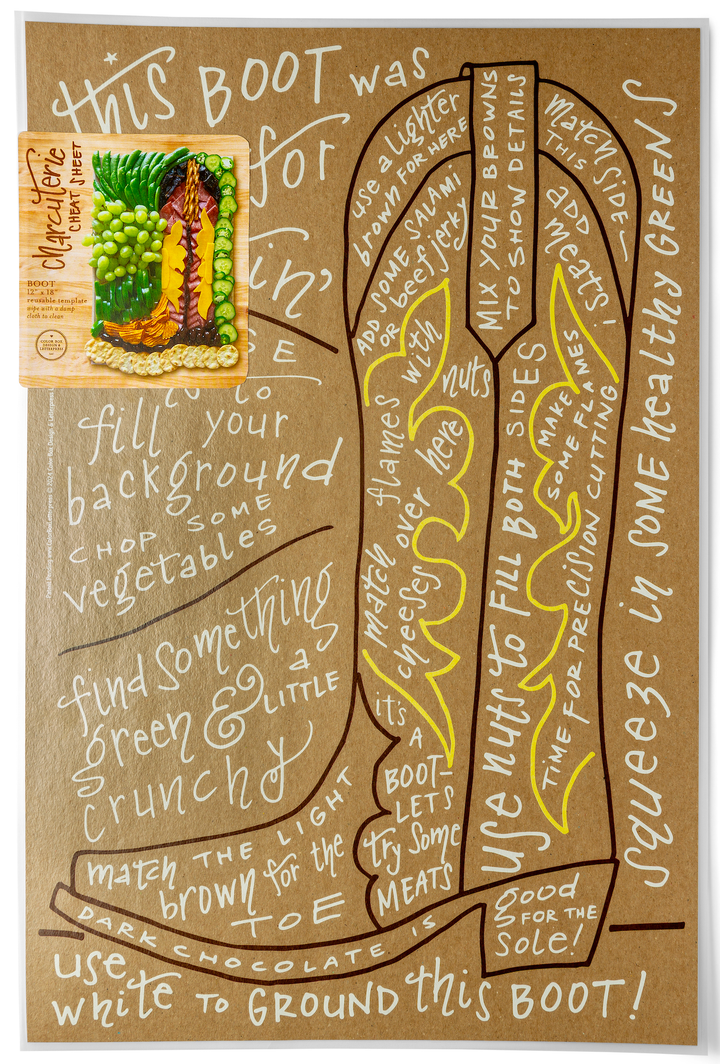 this BOOT was
for
in'
E
is to
fill your
background
CHOP SOME
vegetables
find something
green & a
LITTLE
crunchy
charcuterie
CHEAT SHEET
BOOT
12" x 18"
reusable template
wipe with a damp
cloth to clean
COLOR BOX
DESIGN &
LETTERPRESS
use a lighter
brown FOR HERE
ADD SOME SALAMI
OR beef jerky
MIX YOUR BROWNS
TO SHOW DETAILS
match SIDE
THIS
ADD
meats!
match flames with
cheeses over here
nuts
use nuts to FILL BOTH SIDES
MAKE
SOME FLAMES
TIME FOR PRECISION CUTTING
squeeze in SOME healthy GREENS
it's
A
BOOT-
LETS
try some
MEATS
match THE LIGHT
brown for the
TOE
DARK CHOCOLATE IS
good
FOR THE
sole!
use
white TO GROUND this BOOT!